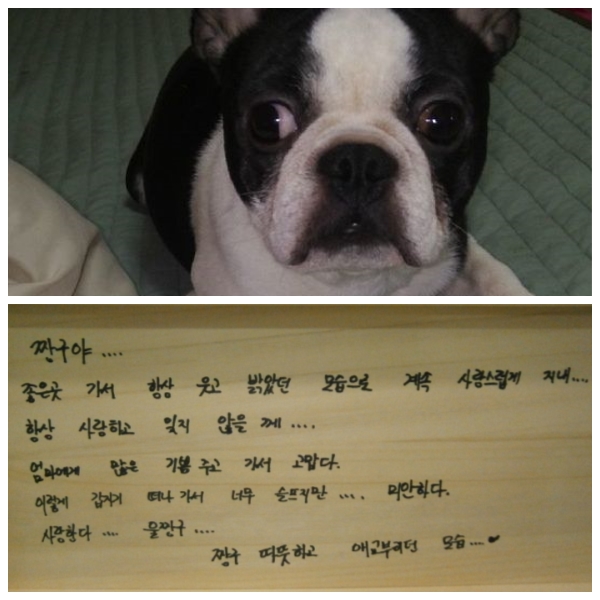 짱구야 ....
좋은곳 가서 항상 웃고 밝았던 모습으로 계속 사랑스럽게 지내....
항상 사랑하고 잊지 않을 께 ....
엄마에게 많은 기쁨 주고 가서 고맙다.
이렇게 갑자기 떠나가서 너무 슬프지만 .... 미안하다.
사랑한다 .... 울짱구 ....
짱구 따뜻하고 애교부리던 모습....♥